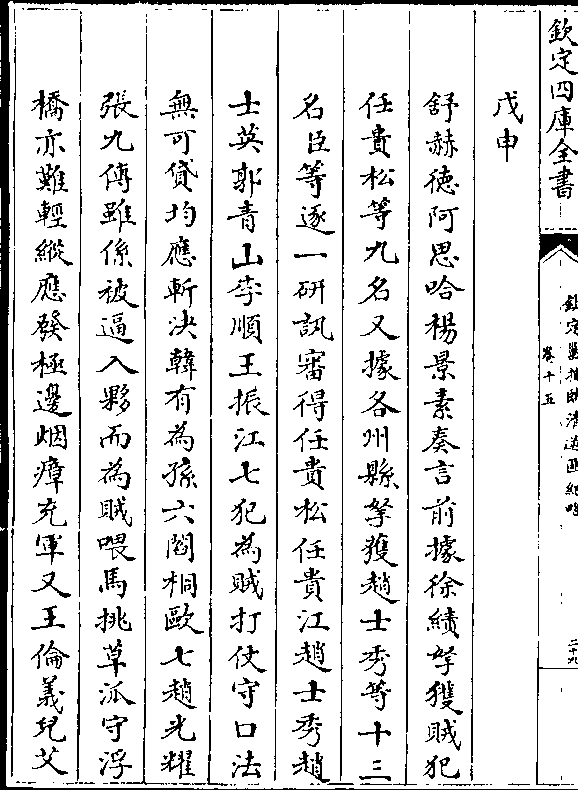 欽定四庫全書
欽定勦捕臨清逆匪紀略
卷十五
二十九
戊申
舒赫德阿思哈楊景素奏言前據徐績拏獲賊犯
任貴松等九名又據各州縣拏獲趙士秀等十三
名臣等逐一研訊審得任貴松任貴江趙士秀趙
士英郭青山李順王振江七犯為賊打仗守口法
無可貸均應斬決韓有為孫六閻桐歐七趙光耀
張九傅雖係被逼入夥而為賊喂馬挑草派守浮
橋亦難輕縱應發極邊烟瘴充軍又王倫義兒艾